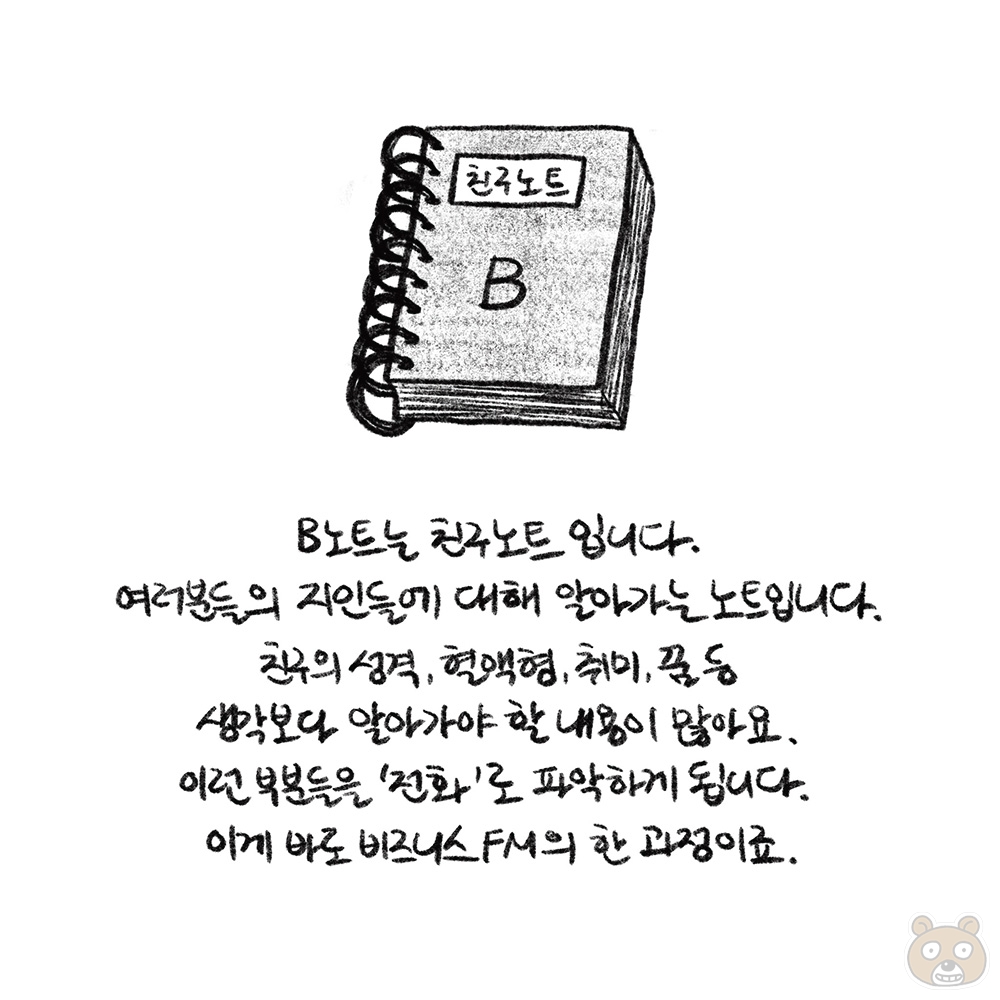 친구노트
B
B노트는 친구노트 입니다.
여러분들의 지인들에 대해 알아가는 노트입니다.
친구의 성격, 혈액형, 취미, 꿈 등
생각보다 알아가야 할 내용이 많아요.
이런 부분들을 '전화'로 파악하게 됩니다.
이게 바로 비즈니스 FM의 한 과정이죠.